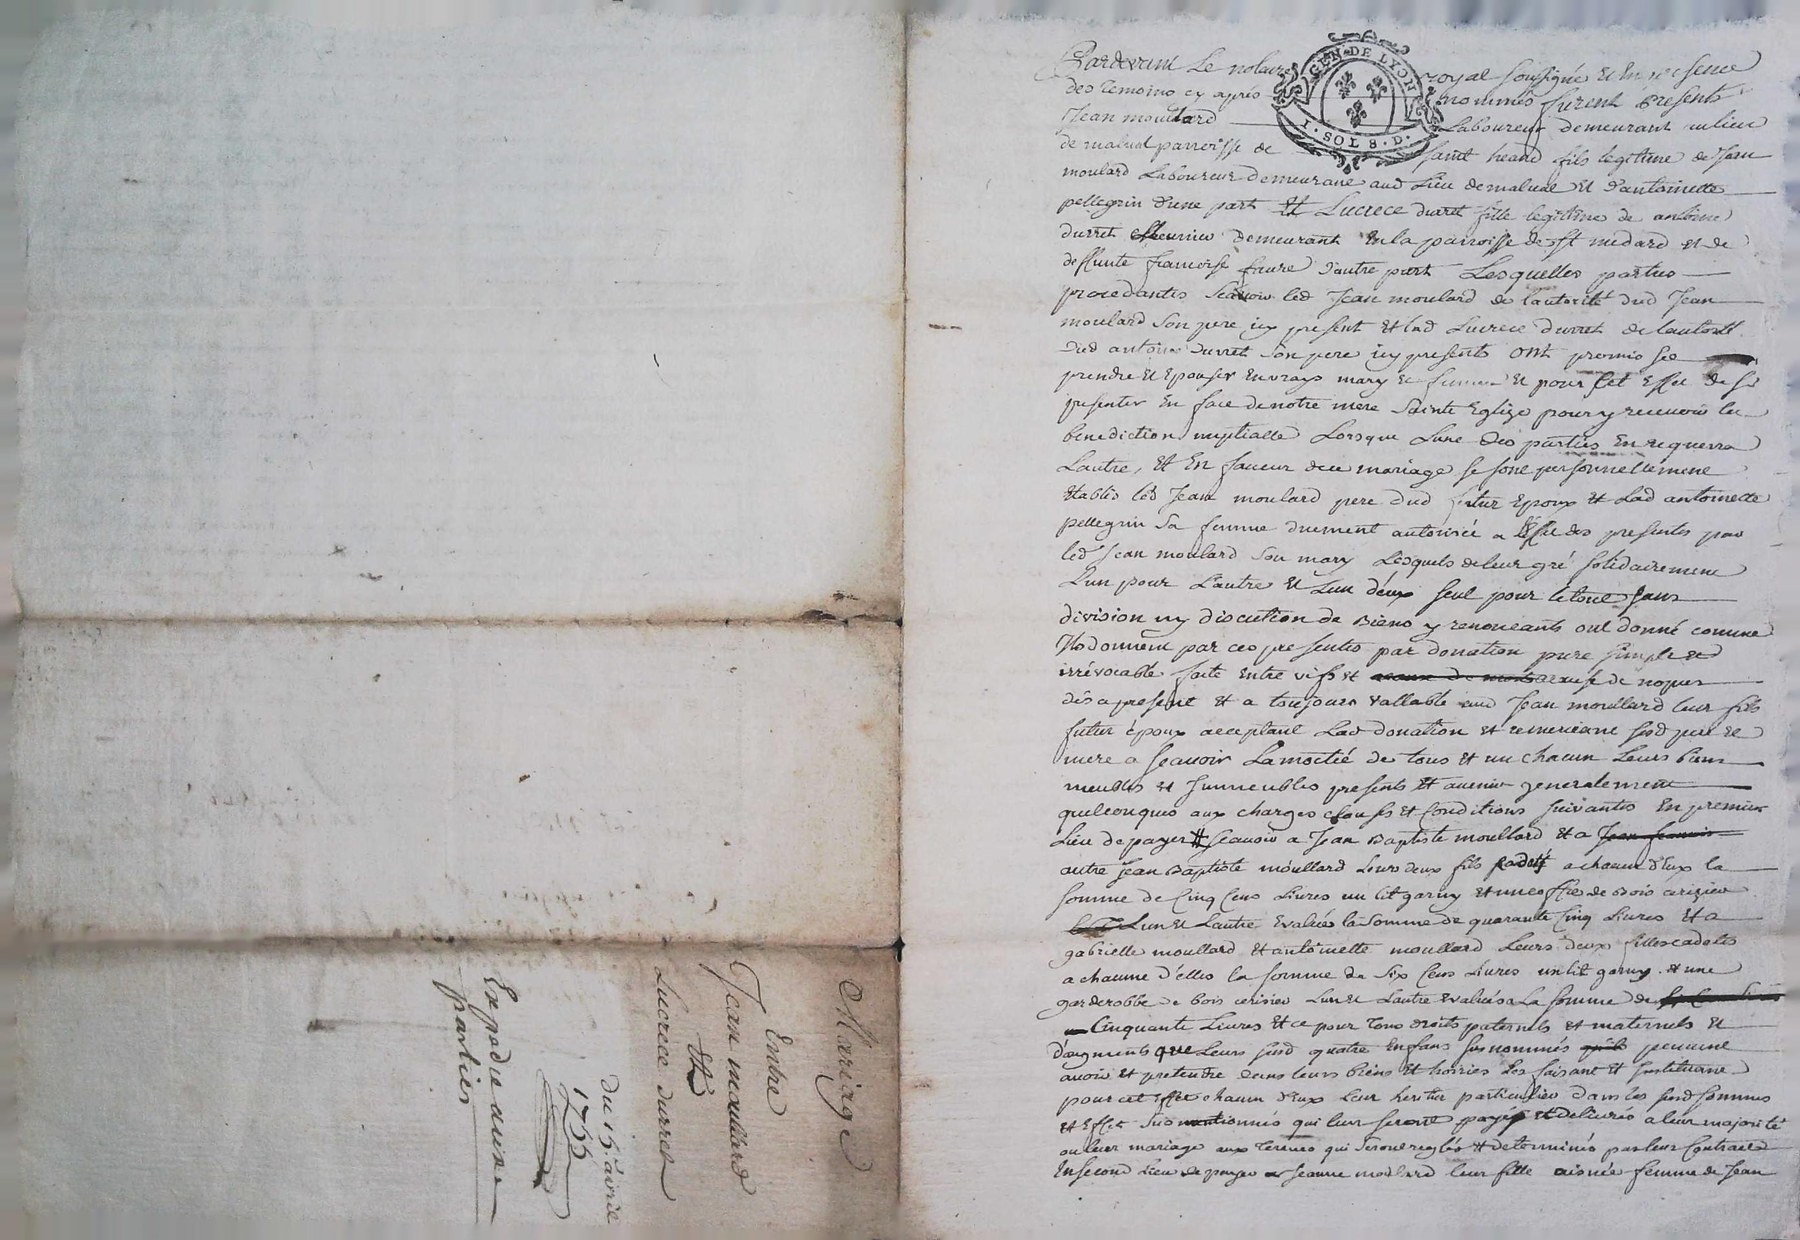 Mariage
Entre
Jean moullard
Et
Lucrece durret
du 15 avril
1755
Expedié aux
parties
GEN · DE LYON
1 · SOL 8 · D ·
Pardevant Le notaire royal soussigné Et En presence
des temoins cy après nommés furent presents
Jean moullard Laboureur demeurant au lieu
de malval parroisse de saint heand fils legitime de Jean
moulard Laboureur demeurant aud Lieu de malval Et d'antoinette
pellegrin d'une part Et Lucrece durret fille legitime de antoine
durret demeurant En la parroisse de st medard et de
deffunte francoise faure d'autre part Lesquelles parties
procedantes scavoir led Jean moulard de l'autorité dud Jean
moulard son pere icy present Et lad Lucrece durret de l'autorité
dud antoine durret son pere icy presents ont promis se
prendre Et Epouser En vrays mary Et femme Et pour cet Effet de se
presenter En face de notre mere sainte Eglize pour y recevoir la
benediction nuptialle Lorsque Lune des parties En requerra
Lautre, Et En faveur dece mariage se sont personnellement
Etablis led Jean moulard pere dud futur Epoux Et Lad antoinette
pellegrin sa femme duement autorisée a L'effet des presentes par
led Jean moulard son mary Lesquels de leur gré solidairement
L'un pour L'autre Et L'un d'eux seul pour le tout sans
division ny discution de Biens y renonceants ont donné comme
Ils donnent par ces presentes par donation pure simple et
irrévocable faite Entre vifs et a cause de nopces
dès a present Et a toujours vallable aud Jean moullard leur fils
futur époux acceptant Lad donation Et remerciant sesd pere Et
mere a scavoir La moitié de tous Et un chacun Leurs biens
meubles Et Immeubles presents Et avenir generalement
quelconques aux charges clauses Et Conditions suivantes En premier
Lieu de payer scavoir a Jean Baptiste moullard Et a Jean francois
autre Jean Baptiste moullard Leurs deux fils cadets a chacun d'Eux la
somme de Cinq Cens Livres un lit garny Et un coffre de Bois cerizier
L'un Et L'autre Evalués la somme de quarante Cinq Livres Et a
gabrielle moullard Et antoinette moullard Leurs deux filles cadetes
a chacune d'elles la somme de Six Cens Livres un lit garny Et une
garderobbe de bois cerisier L'un Et L'autre Evalués a La somme de
Cinquante Livres Et ce pour Tous droits paternels Et maternels Et
d'augments que Leurs susd quatre Enfans susnommés peuvent
avoir Et pretendre dans leurs biens Et hoiries Les faisant Et Instituant
pour cet Effet chacun d'Eux Leur heritier particulier dans les susd sommes
Et Effets Susmentionnés qui leur seront payés Et delivrés a leur majorité
ou leur mariage aux Termes qui seront reglés Et determinés par leur Contract
En second Lieu de payer a Jeanne moulard leur fille aisnée femme de Jean